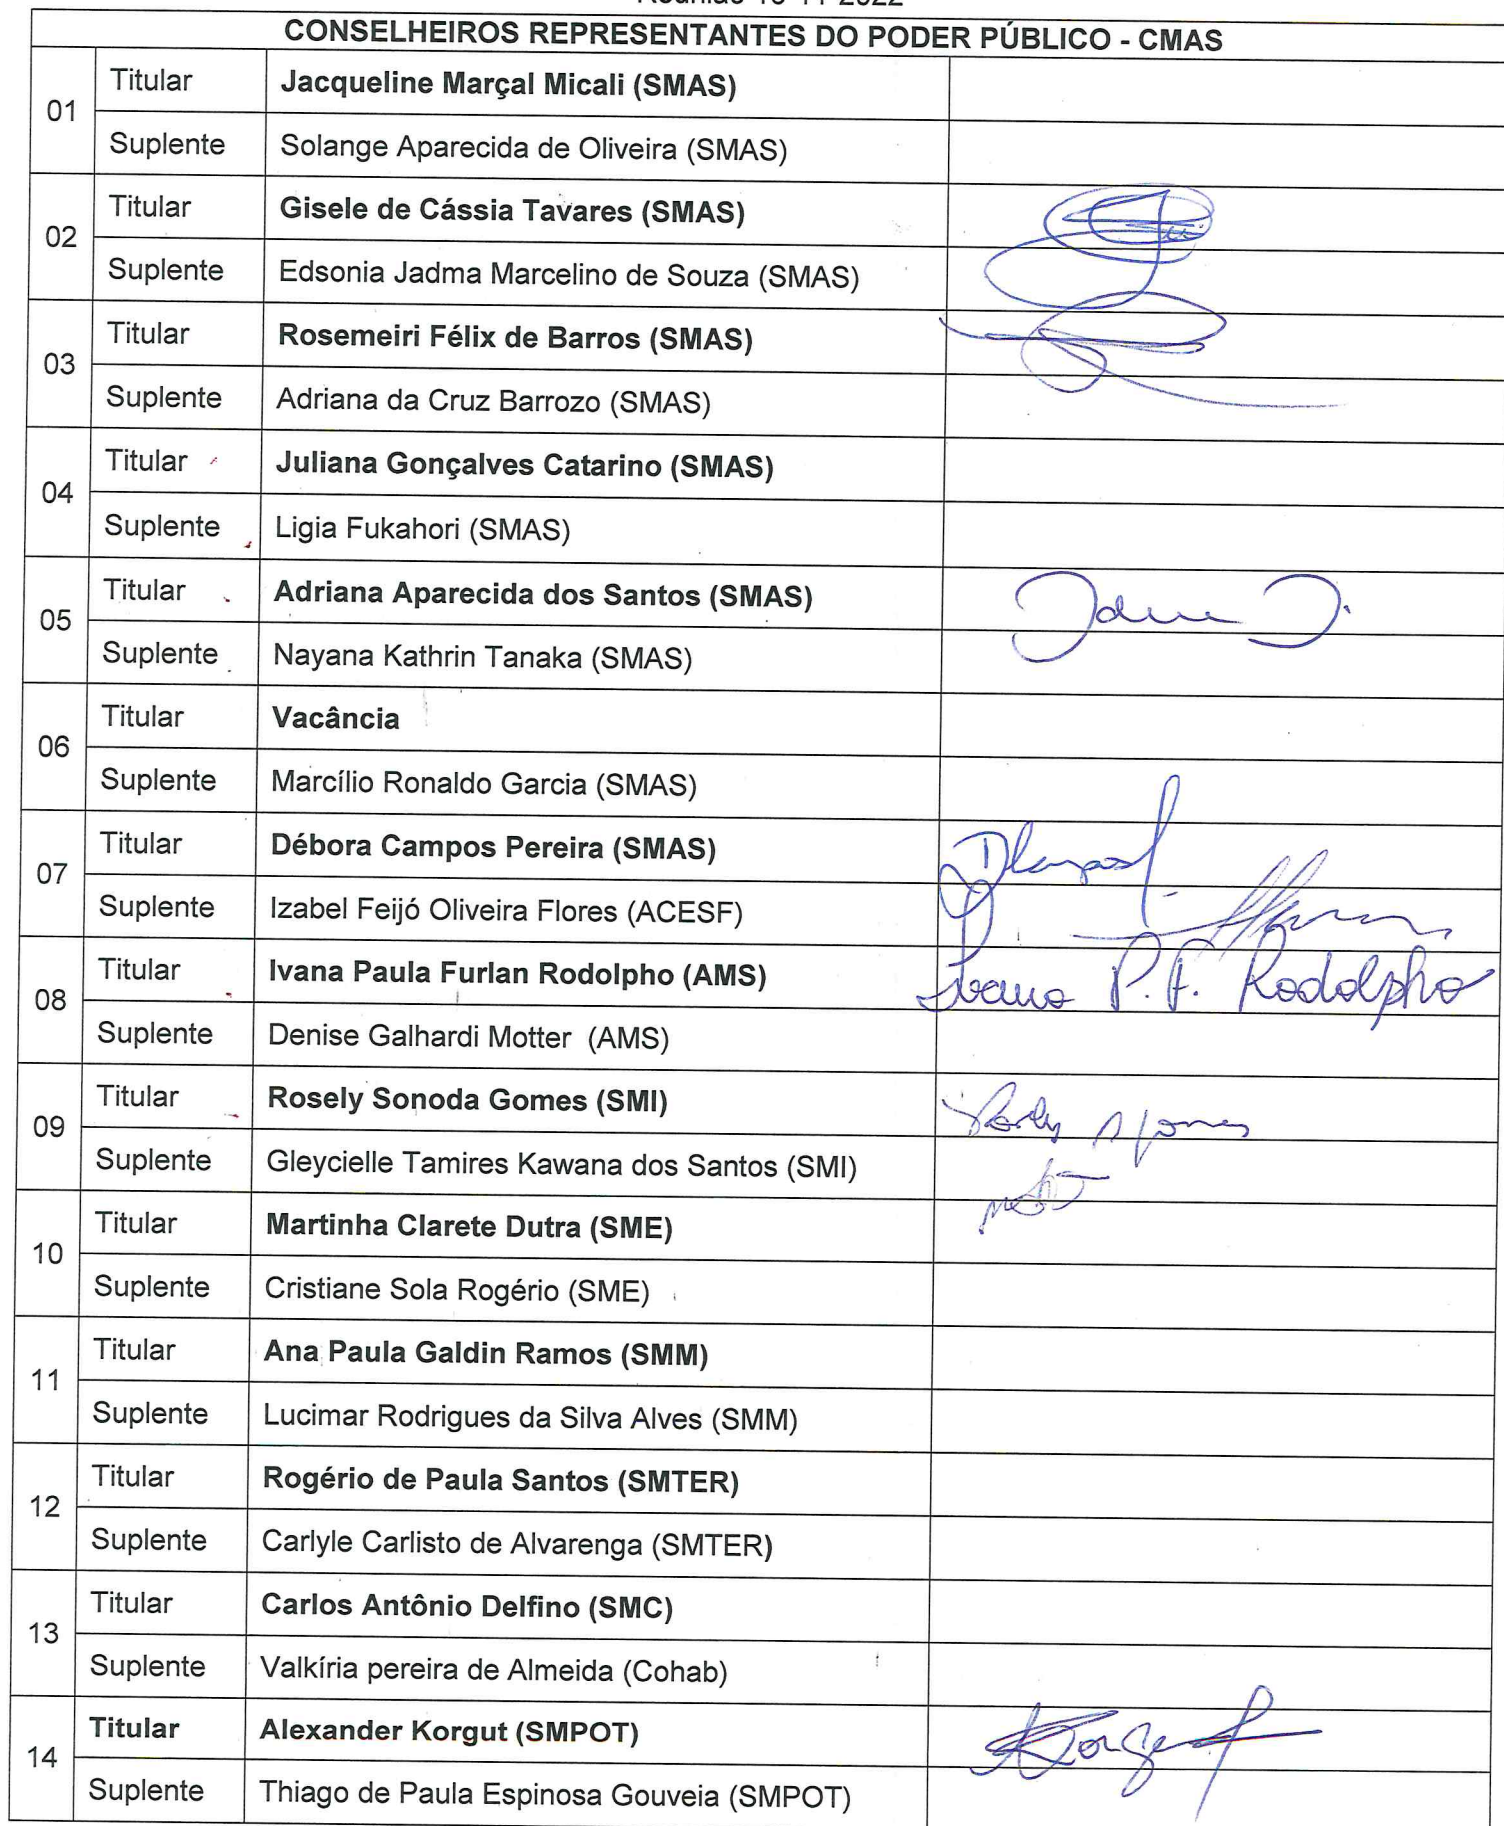 CONSELHEIROS REPRESENTANTES DO PODER PÚBLICO - CMAS
01 Titular Jacqueline Marçal Micali (SMAS)
Suplente Solange Aparecida de Oliveira (SMAS)
02 Titular Gisele de Cássia Tavares (SMAS)
Suplente Edsonia Jadma Marcelino de Souza (SMAS)
03 Titular Rosemeiri Félix de Barros (SMAS)
Suplente Adriana da Cruz Barrozo (SMAS)
04 Titular Juliana Gonçalves Catarino (SMAS)
Suplente Ligia Fukahori (SMAS)
05 Titular Adriana Aparecida dos Santos (SMAS)
Suplente Nayana Kathrin Tanaka (SMAS)
06 Titular Vacância
Suplente Marcílio Ronaldo Garcia (SMAS)
07 Titular Débora Campos Pereira (SMAS)
Suplente Izabel Feijó Oliveira Flores (ACESF)
08 Titular Ivana Paula Furlan Rodolpho (AMS) Ivana P. F. Rodolpho
Suplente Denise Galhardi Motter (AMS)
09 Titular Rosely Sonoda Gomes (SMI)
Suplente Gleycielle Tamires Kawana dos Santos (SMI)
10 Titular Martinha Clarete Dutra (SME)
Suplente Cristiane Sola Rogério (SME)
11 Titular Ana Paula Galdin Ramos (SMM)
Suplente Lucimar Rodrigues da Silva Alves (SMM)
12 Titular Rogério de Paula Santos (SMTER)
Suplente Carlyle Carlisto de Alvarenga (SMTER)
13 Titular Carlos Antônio Delfino (SMC)
Suplente Valkíria pereira de Almeida (Cohab)
14 Titular Alexander Korgut (SMPOT)
Suplente Thiago de Paula Espinosa Gouveia (SMPOT)